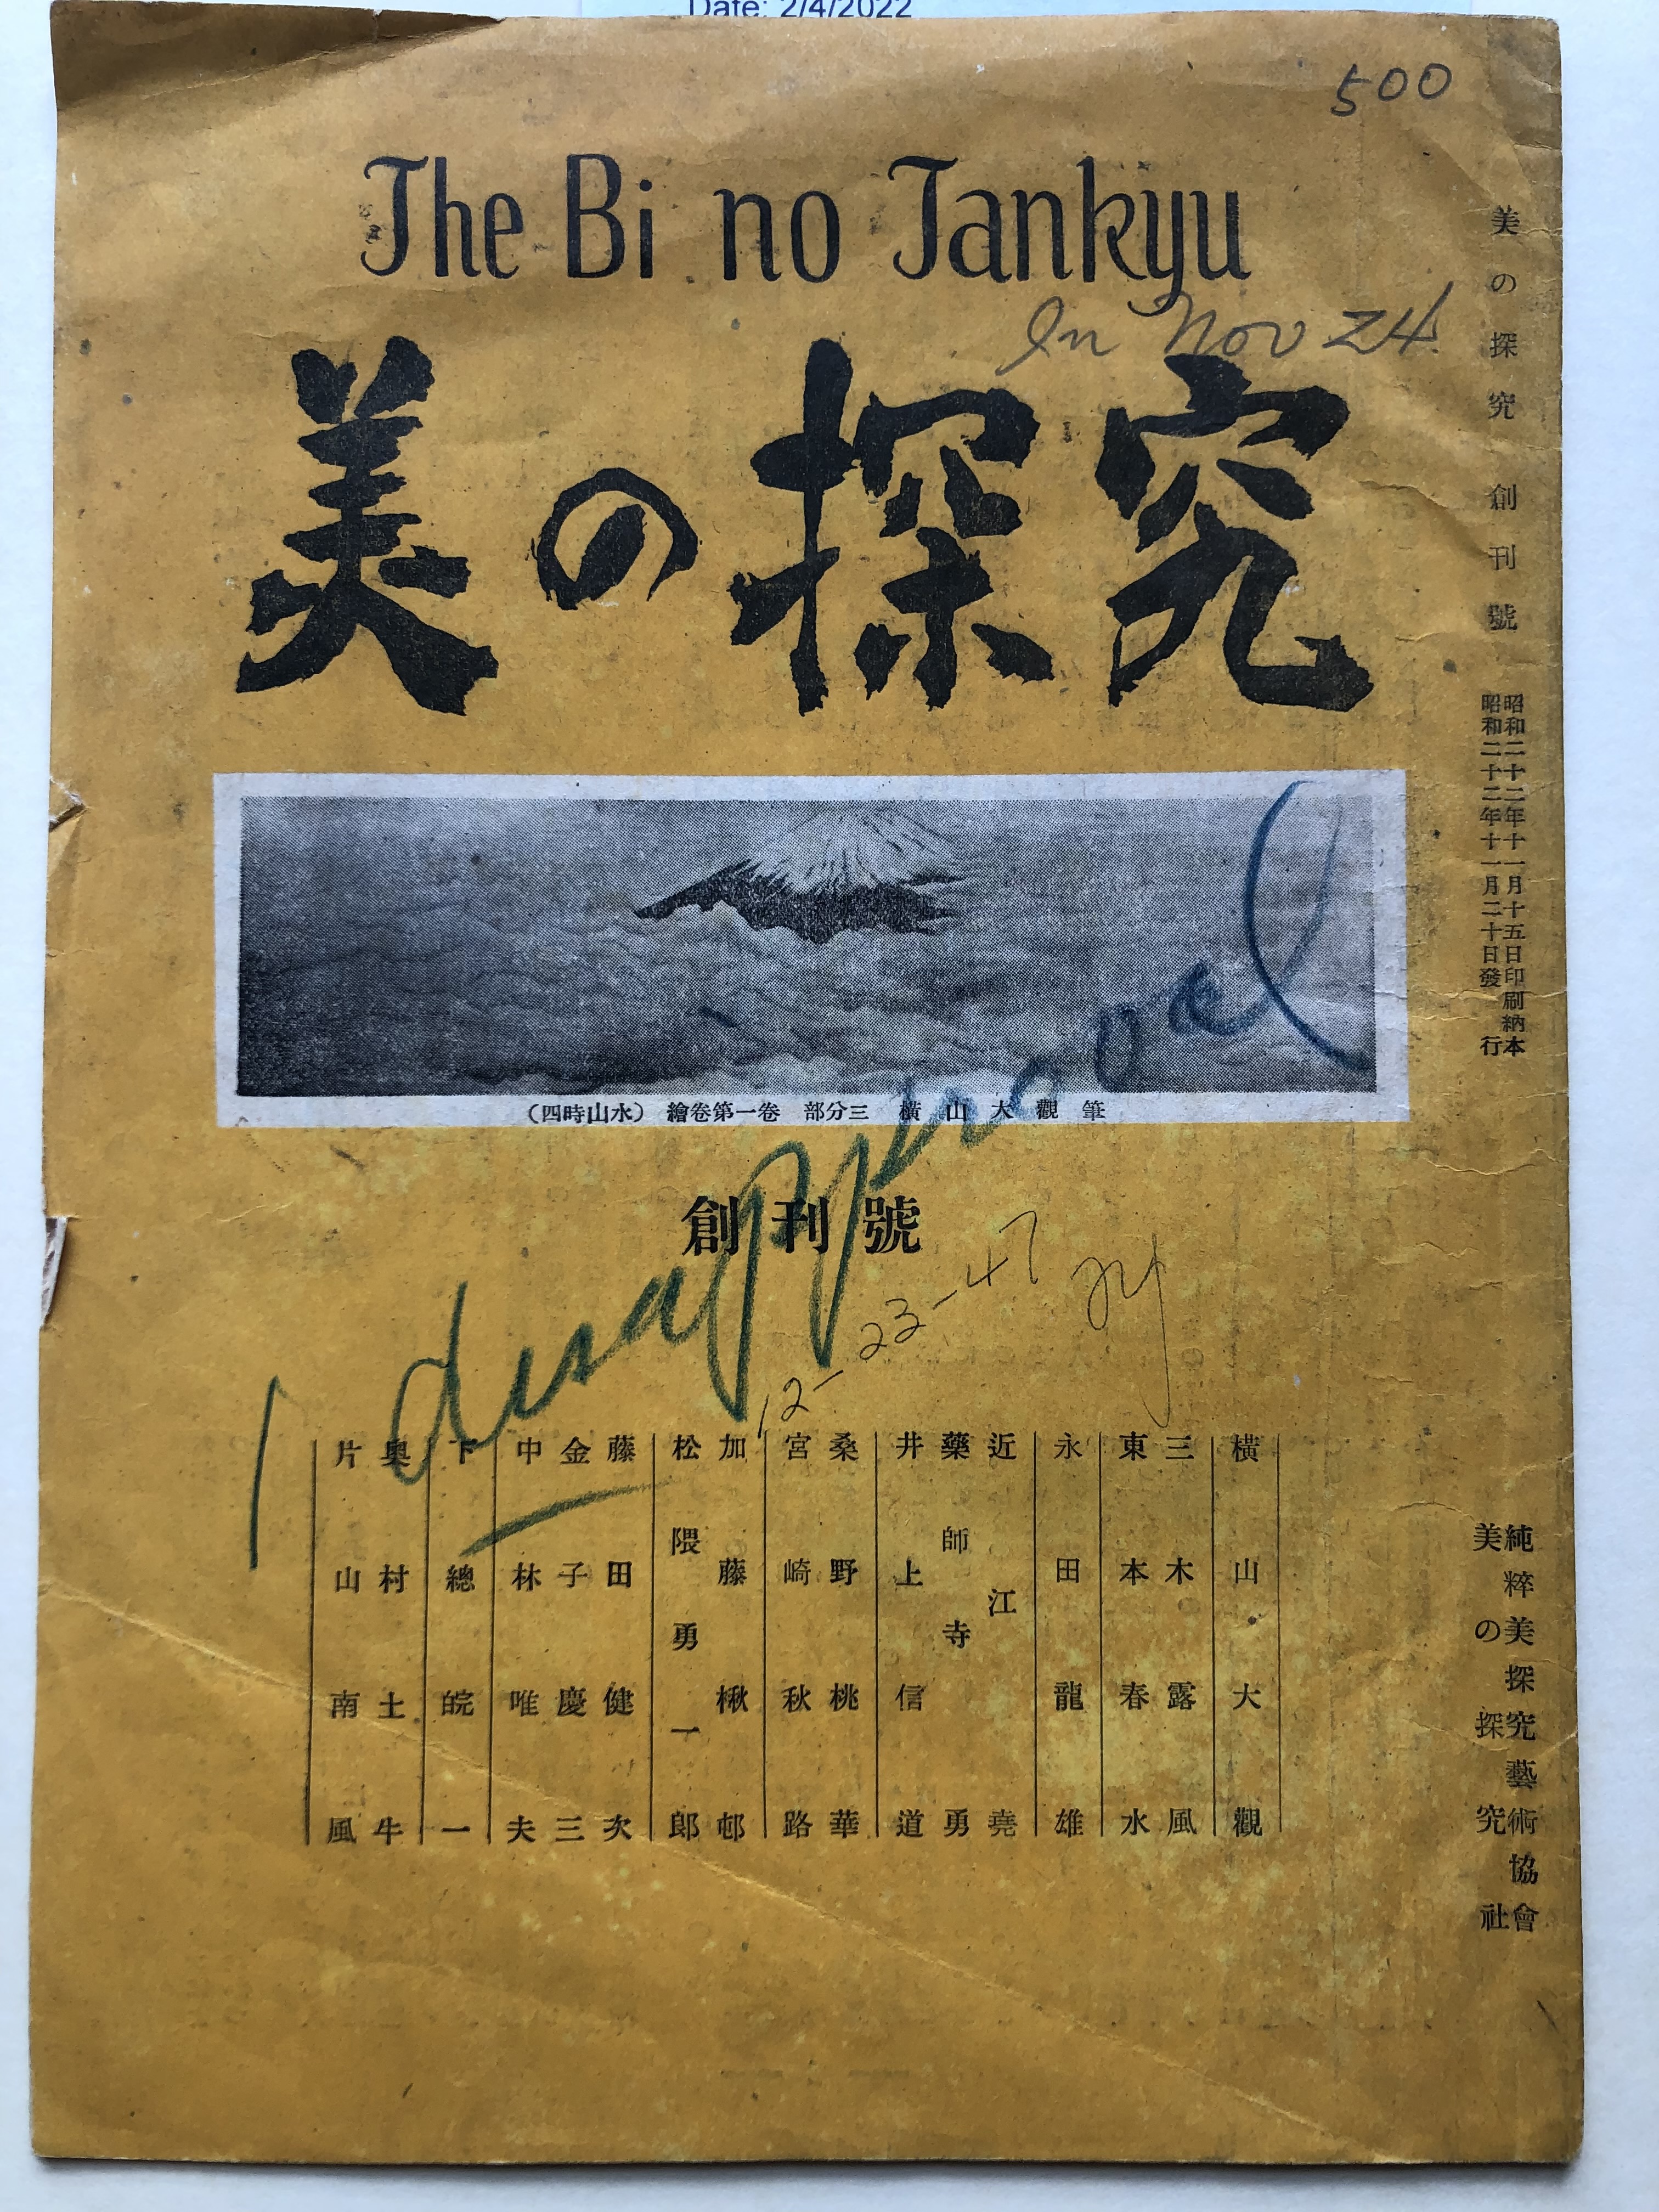 Date: 2/4/2022
500
The Bi no Tankyu
In Nov 24
美の探究
(四時山水) 繪卷第一卷 部分三 横山大觀筆
創刊號
disapproval
12-23-47
横山大觀
三木露風
東本春水
永田龍雄
近江堯
藥師寺勇
井上信道
桑野桃華
宮崎秋路
加藤楸邨
松隈勇一郎
藤田健次
金子慶三
中林唯夫
下總皖一
奥村土牛
片山南風
美の探究 創刊號
昭和二十二年十一月十五日印刷納本
昭和二十二年十一月二十日發行
純粹美探究藝術協會
美の探究社